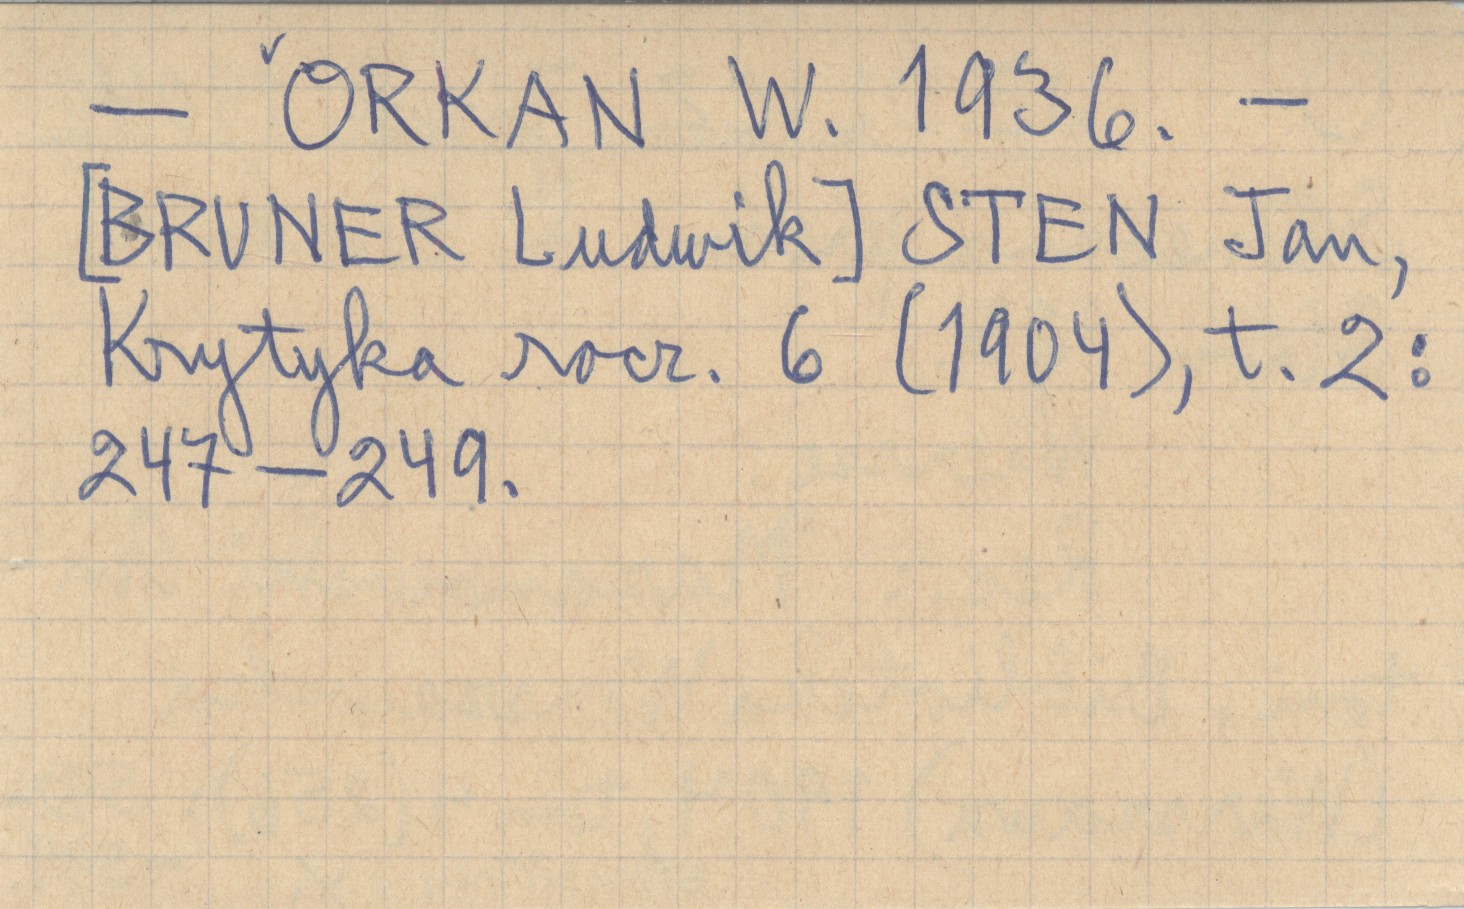 — ˇORKAN W. 1936. —
[BRUNER Ludwik] STEN Jan,
Krytyka rocz. 6 (1904), t. 2:
247—249.